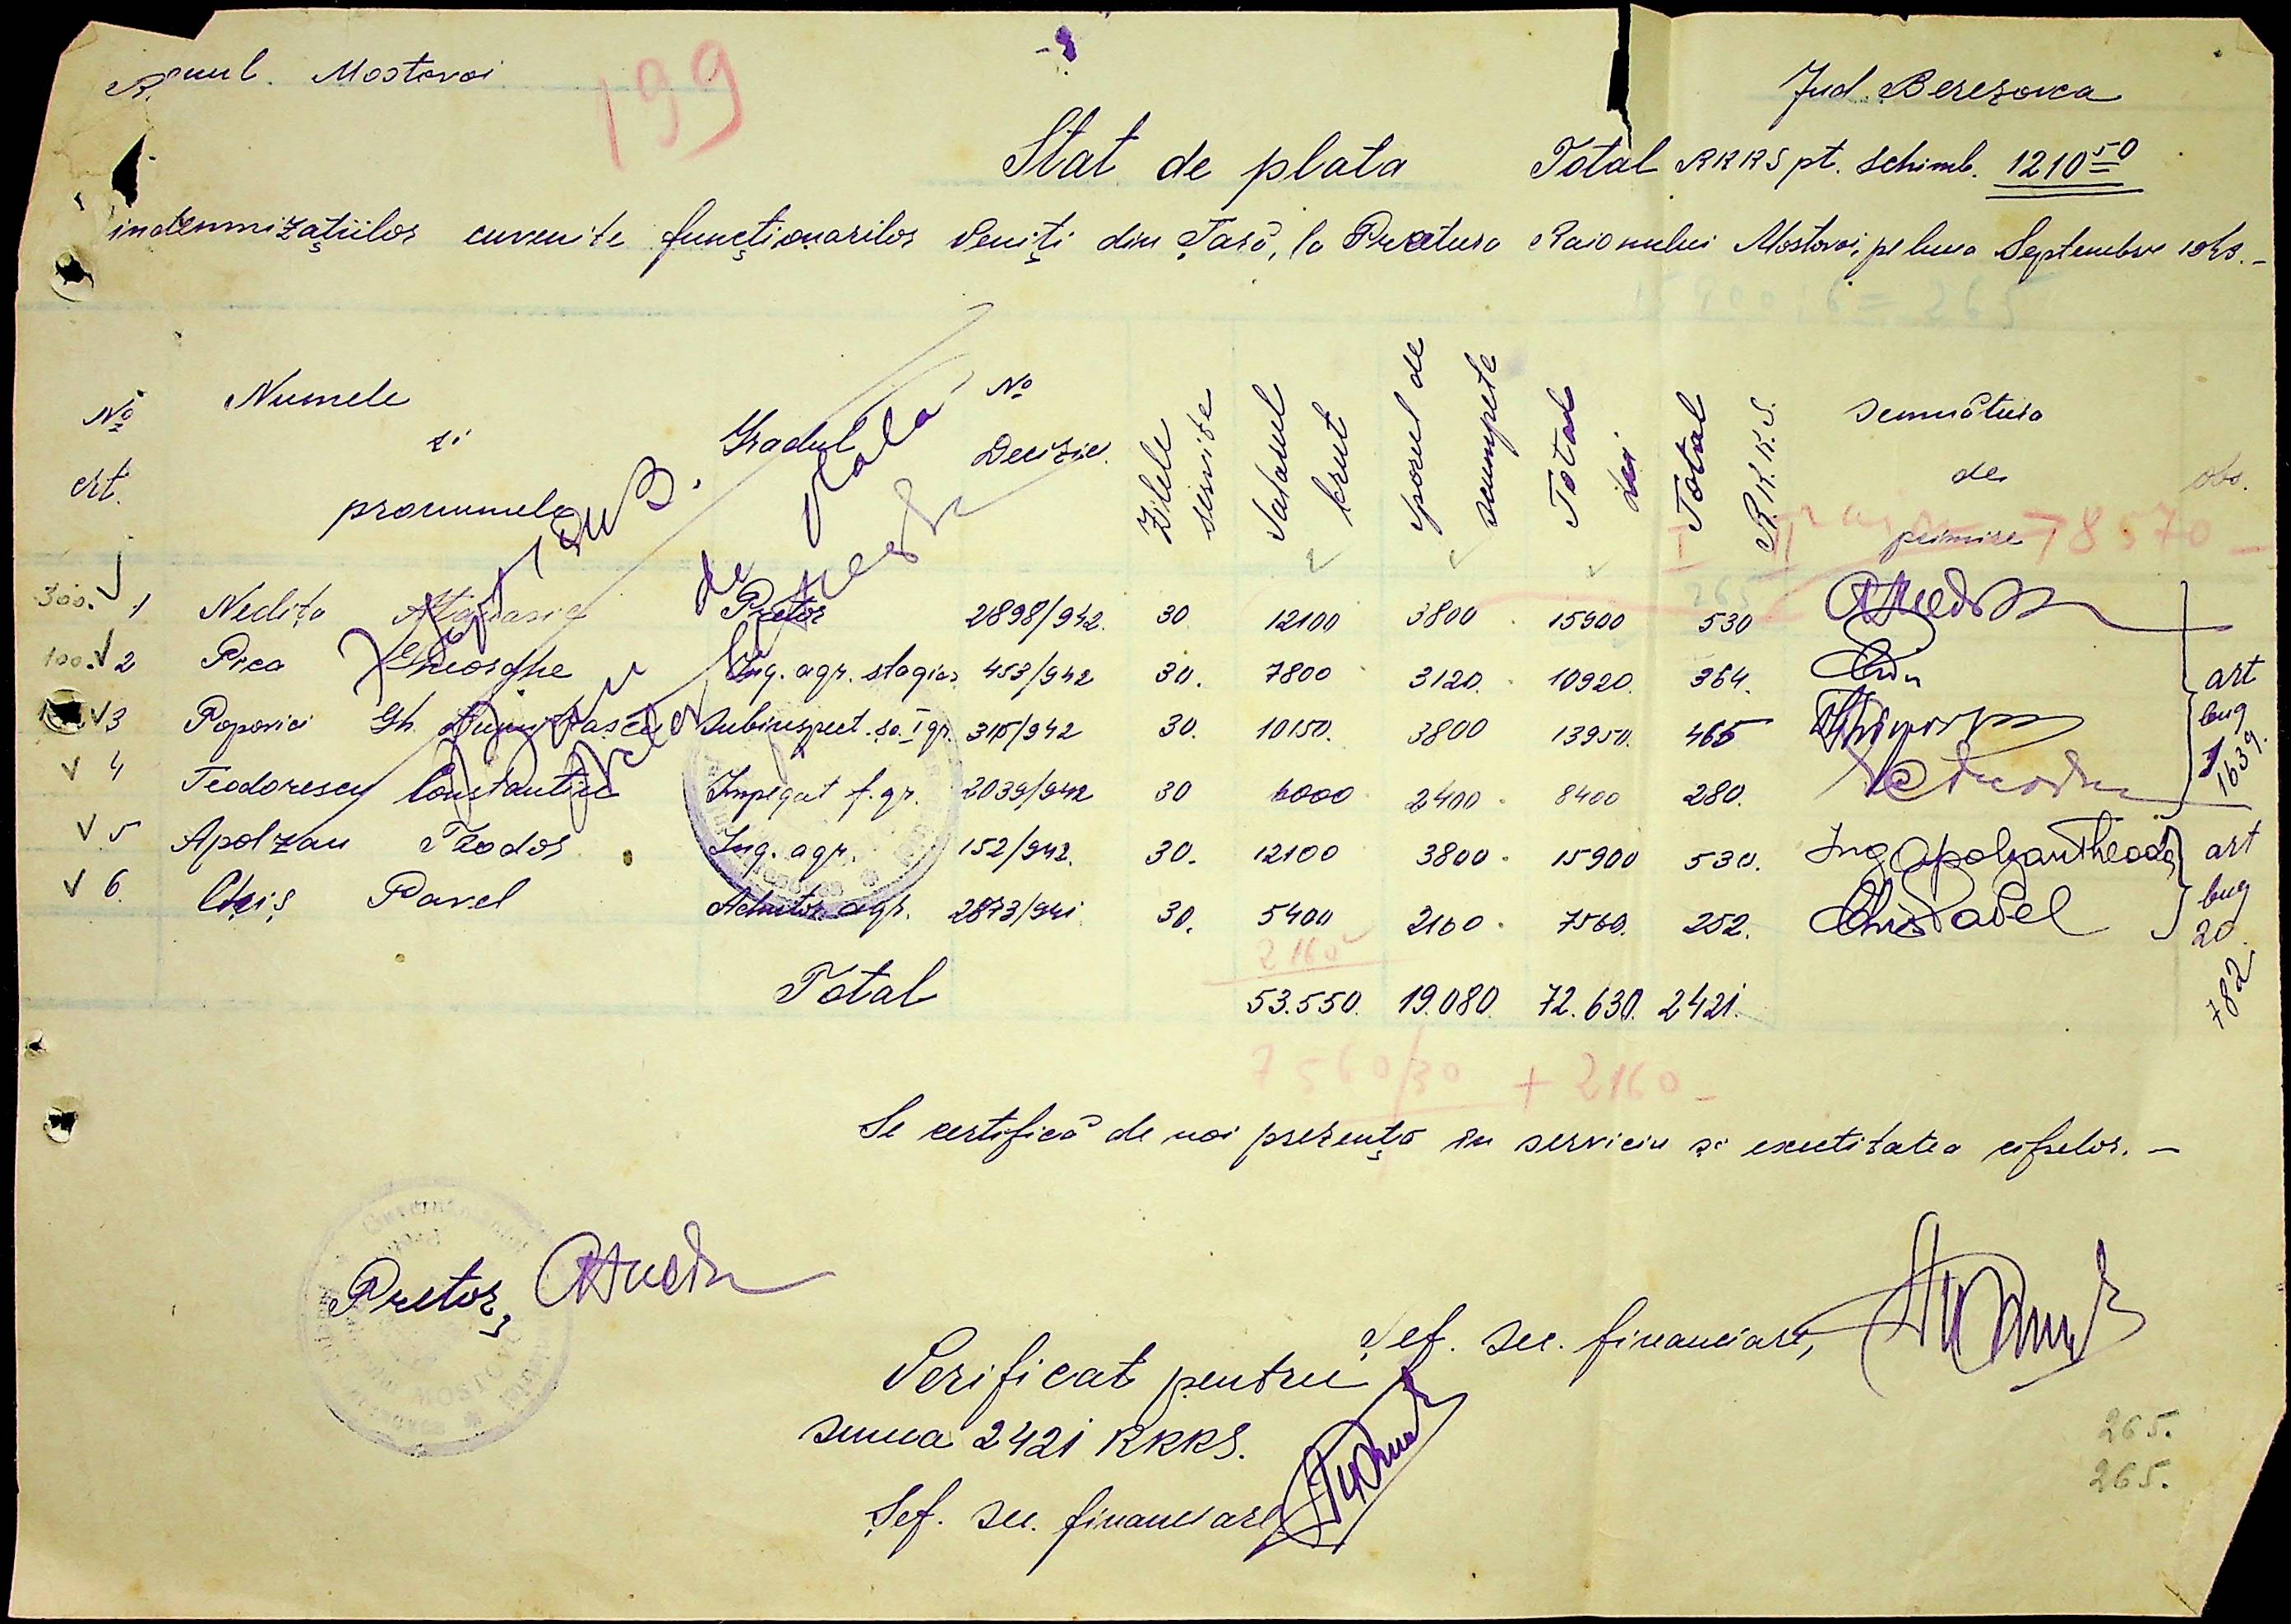 R-nul. Mostovoi
199
Jud. Berezovca
Stat de plata
Total RKKS pt. schimb. 1210 50
indemnizațiilor cuvenite funcționarilor veniți din Țară, la Pretura Raionului Mostovoi, pe luna Septembrie
15900 : 6 = 265
No crt. Numele si pronumele Gradul No Decizie Zilele servite Salariul brut sporul de scumpete Total lei Total R.K.K.S. semnătura de primire obs.
I II 78570 -
265
300. 1 Nedița Atanasie Pretor 2898/942. 30 12100 3800 15900 530
100. 2 Prca Gheorghe Ing. agr. stagiar 453/942 30. 7800 3120. 10920. 364. art
3 Popovici Gh. Dumitrașcu subinspect. sc. I gr. 315/942 30. 10150. 3800 13950. 465 bug 1
4 Teodorescu Constantin Impegat f. gr. 2039/942 30 6000 2400 8400 280. 1639.
5 Apolzan Teodor Ing. agr. 152/942. 30. 12100 3800 15900 530. Ing Apolzan Theodor art
6. Chiș Pavel Achutor agr. 2873/941 30. 5400 2160 7560. 252. Chiș Pavel bug 20.
2160
782.
Total 53.550. 19.080. 72.630. 2421.
7560/30 + 2160 -
Se certifică de noi prezența în serviciu și exactitatea cifrelor. -
Pretor,
Șef. sec. financiare,
Verificat pentru
suma 2421 RKKS.
Șef. sec. financiare
265.
265.
MOSTOVOI